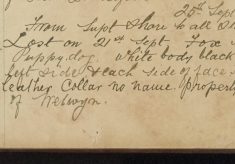 25th Sept
From Supt Shore to all Di
Lost on 21st Sept, Fox
Puppy dog, White body black
left side & each side of face
leather Collar no name. Property
of Welwyn.